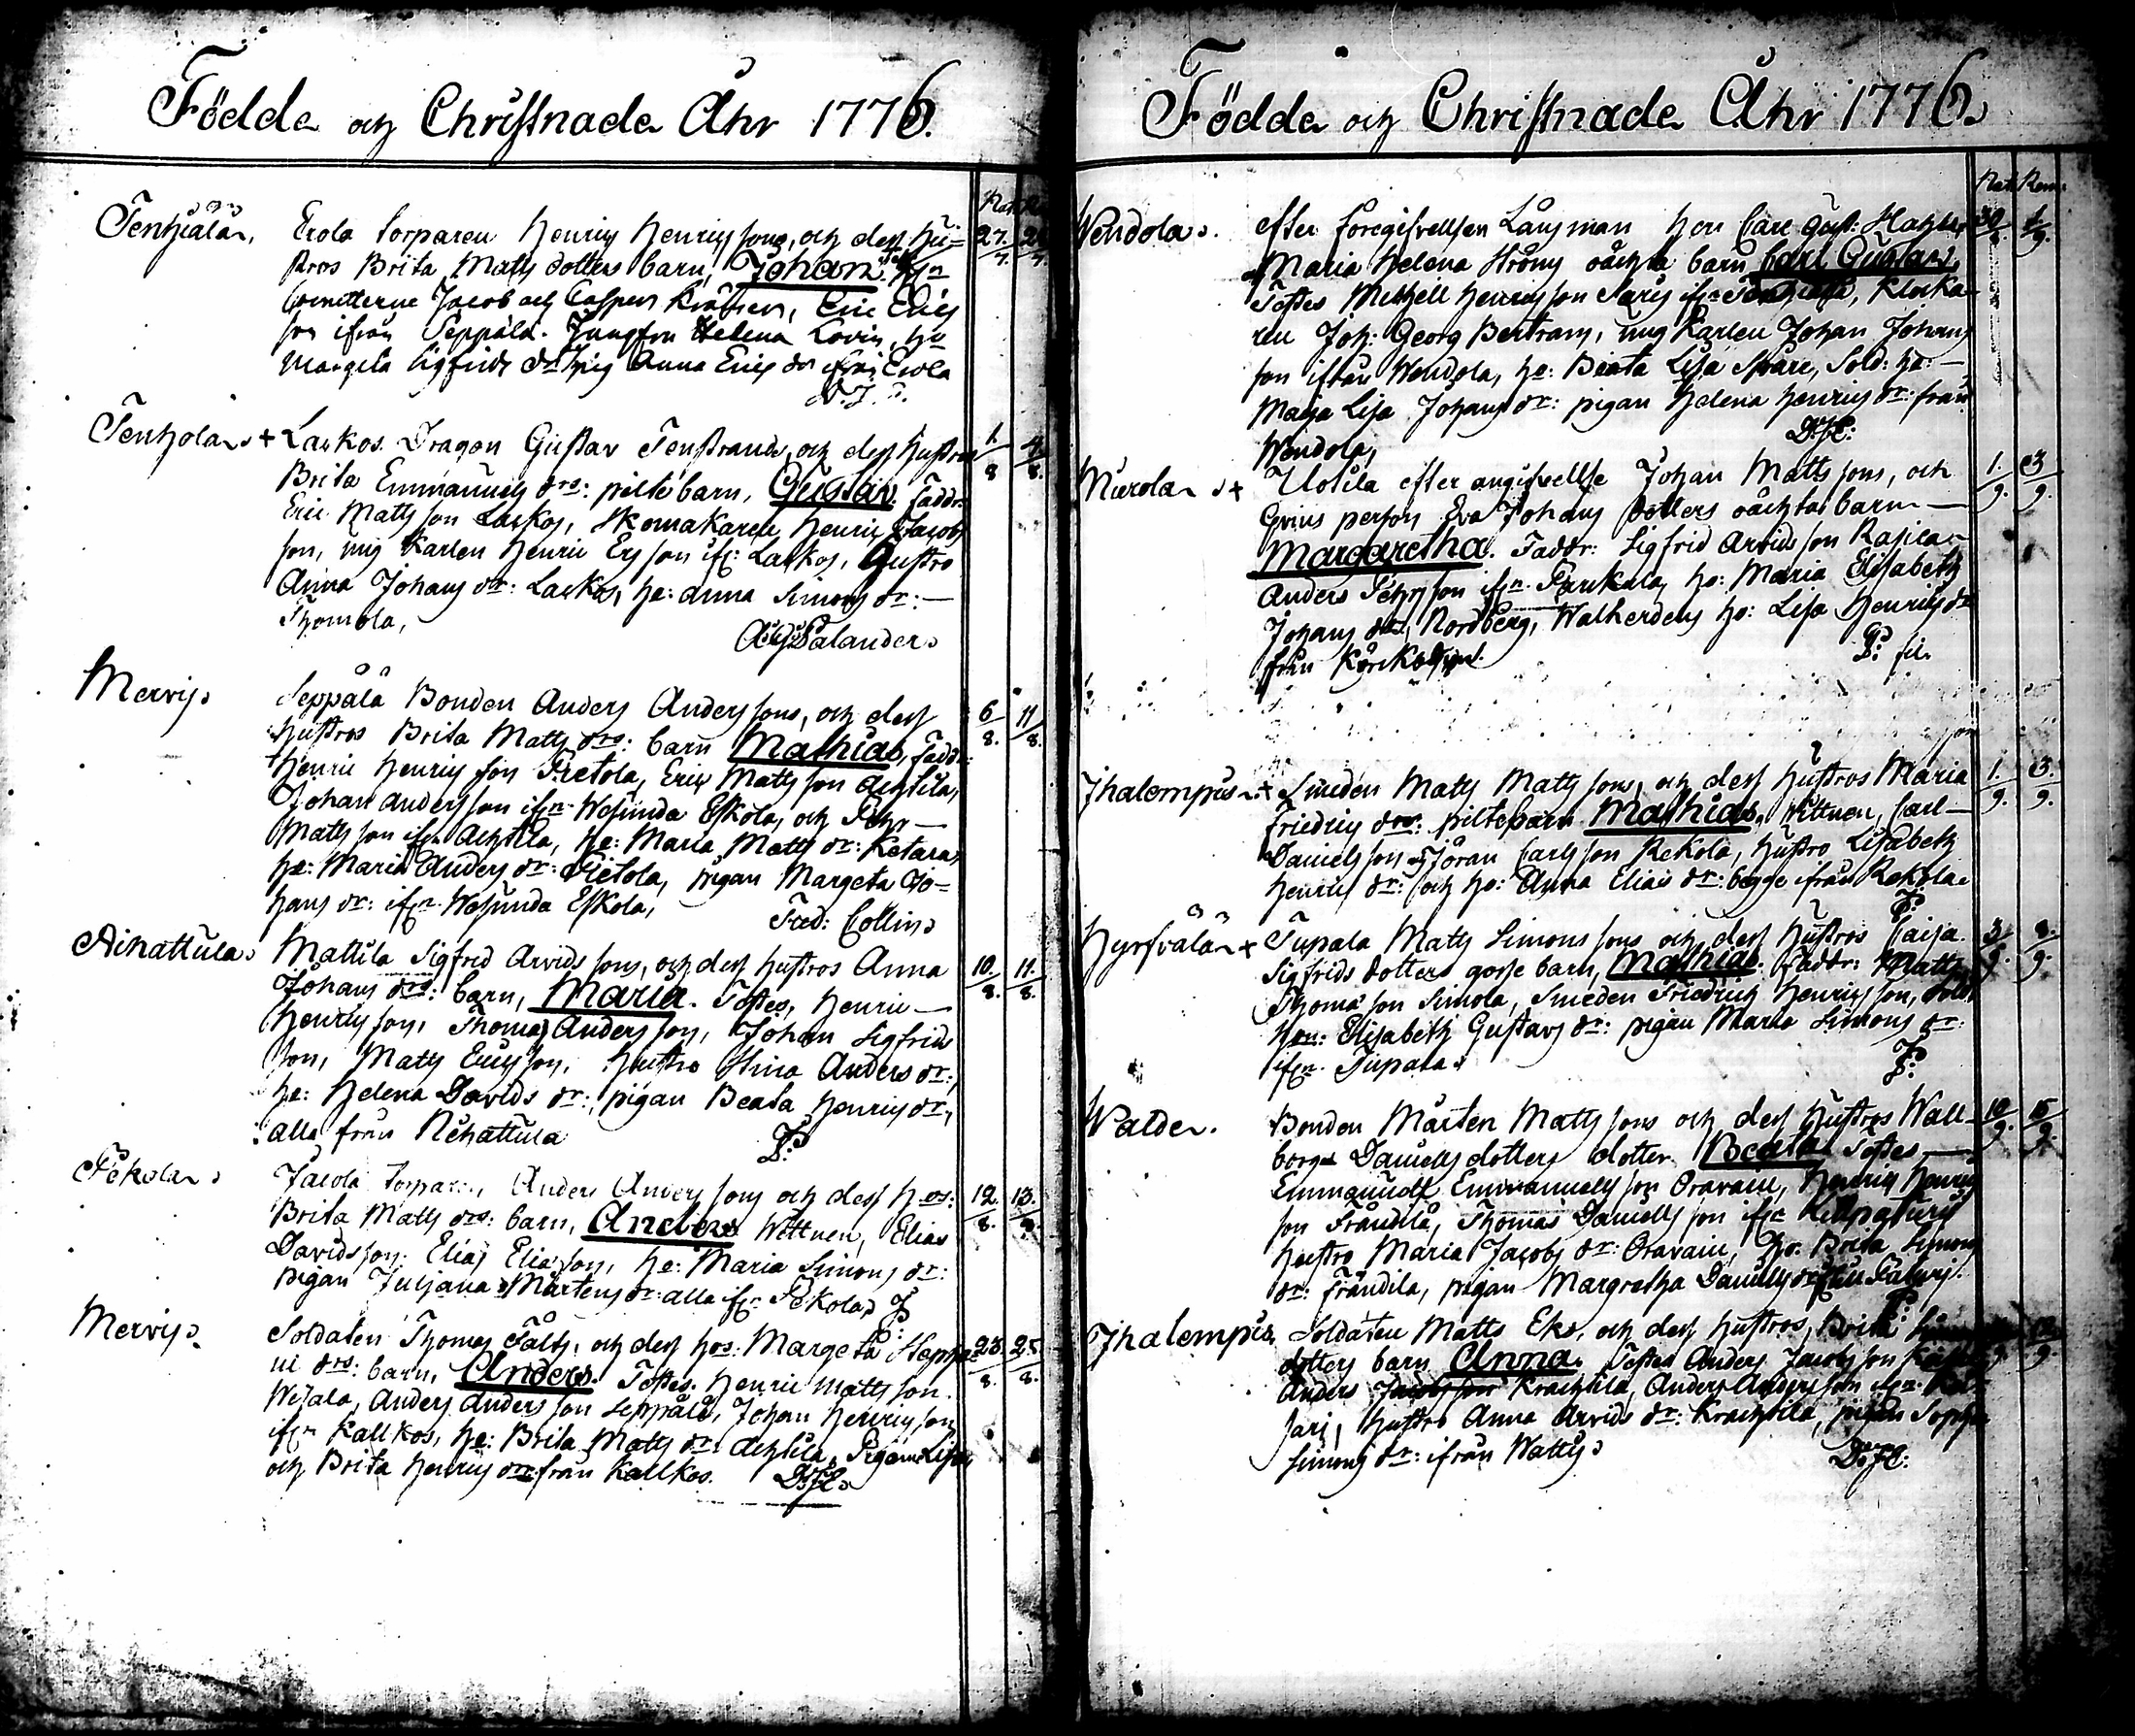 Födde och Christnade Åhr 1776.
Nat.
Tenhiälä. Erola torparen Henrich Henrichsons, och dess hu=
27/7.
stros Brita Matts dotters barn, Johan.
Cornetterne Jacob och Casper Eric Erics
son ifrån Seppälä. Jungfru Helena Lovin, h:u
Margeta Sigfrids dr: Anna Erics dr ifrån Erola
Tenhola + Laskos. Dragon Gustav Tenstrands, och dess hustros
1/8 4/8.
Brita Emmanuels drs: pilte barn, Gustav. Faddr:
Eric Matts son Laskos, Skomakaren Henric Jacobs
son, ung Karlen Henric Ers son ifr: Laskos, Hustro
Anna Johans dr: Laskos, he: Anna Simons dr:
Thombla,
Salander
Mervis Seppälä Bonden Anders Anders sons, och dess
6/8. 11/8.
hustros Brita Matts drs: barn Mathias, Faddr:
Henric Henrics son Pietola, Eric Matts son Achtila,
Johan Anders son ifrn. Wesunda Eskola, och Pehr
Matts son ifrn Achtila, he: Maria Matts dr: Ketara,
he: Maria Anders dr: Pietola, pigan Margeta Jo=
hans dr: ifrn. Wesunda Eskola,
Fred: Collin
Aihattula Mattila Sigfred Arvids sons, och dess hustros Anna
10./8. 11./8.
Johans drs: barn, Maria. Testes, Henric
Henrics son, Thomas Anders son, Johan Sigfrids
son, Matts Erics son, hustro Stina Anders dr:,
he: Helena Davids dr:, pigan Beata Henrics dr,
alla från Aihattula
Pekola Jacola torparen, Anders Anders sons och dess hos:
12./8. 13./8.
Brita Matts drs: barn, Anders Wittnen, Elias
Davids son. Elias Elias son, he: Maria Simons dr:
pigan Juljana Mårtens dr: alla ifrn Pekola,
Mervis Soldaten Thomas Fält, och dess hos: Margeta Stepha=
23/8. 25/8.
ni drs: barn, Anders. Testes. Henric Matts son.
Wesala, Anders Anders son Seppälä, Johan Henrics son
ifrn Kallkos, he: Brita Matts dr. Achtila, Pigan Lisa
och Brita Henrics dr: från Kallkos.
Födde och Christnade Åhr 1776.
Nat. Ren.
Wendola. efter föregifvelsen Länsman Herr Carl Gust:
30/8. 1/9.
Maria Helena Ströng oächta barn Carl Gustav.
Testes Michell Henrics son klocka-
ren Joh: Georg Bertram, ung Karlen Johan Johans
son ifrån Wendola, he: Beata Lisa Spåre, Sold: he:
Maja Lisa Johans dr: pigan Helena Henrics dr: från
Wendola,
Murola + Uotila efter angifvellse Johan Matts sons, och
1./9. 3/9.
Qvins person Eva Johans dotters oächta barn
Margaretha. Faddr: Sigfrid Arvids son
Anders Pehrs son ifrn. Parikala, he: Maria Elisabeth
Johans dr, Nordberg, Walkerdens he: Lisa Henrics dr
från
Ihalempis + Smeden Matts Matts sons, och dess hustros Maria
1./9. 3./9.
Friedrics drs: piltebarn Mathias. Wittnen, Carl
Daniels son, Jöran Carls son Rekola, hustro Lisabeth
Henrics dr: och he: Anna Elias dr: begge ifrån Rekola
Hyrfvälä + Tupala Matts Simons sons och dess hustros Caisa
3/9. 8./9.
Sigfrids dotters gosse barn, Mathias. Faddr: Matts
Thoma son Simola, Smeden Friedrich Henrics son, Sold
hon: Elisabeth Gustavs dr: pigan Maria Simons dr:
ifrn. Tupala
Walde. Bonden Mårten Matts sons och dess hustros Wall-
10/9. 15/9.
borgs Daniells dotters dotter Beata. Testes
Emmanuel Emmanuels son Oravain, Henric Henrics
son Frändilä, Thomas Daniells son ifrn
hustro Maria Jacobs dr: Oravain, he. Brita Simons
dr: Frändila, pigan Margretha Daniells dr
Ihalempis Soldaten Matts Ek, och dess hustros, Brita
dotters barn Anna. Testes Anders Jacobs son
Anders Krachtila, Anders Anders son ifrn
hustro Anna Arvids dr: Krachtila, pigan Sophia
Simons dr: ifrån Wattis